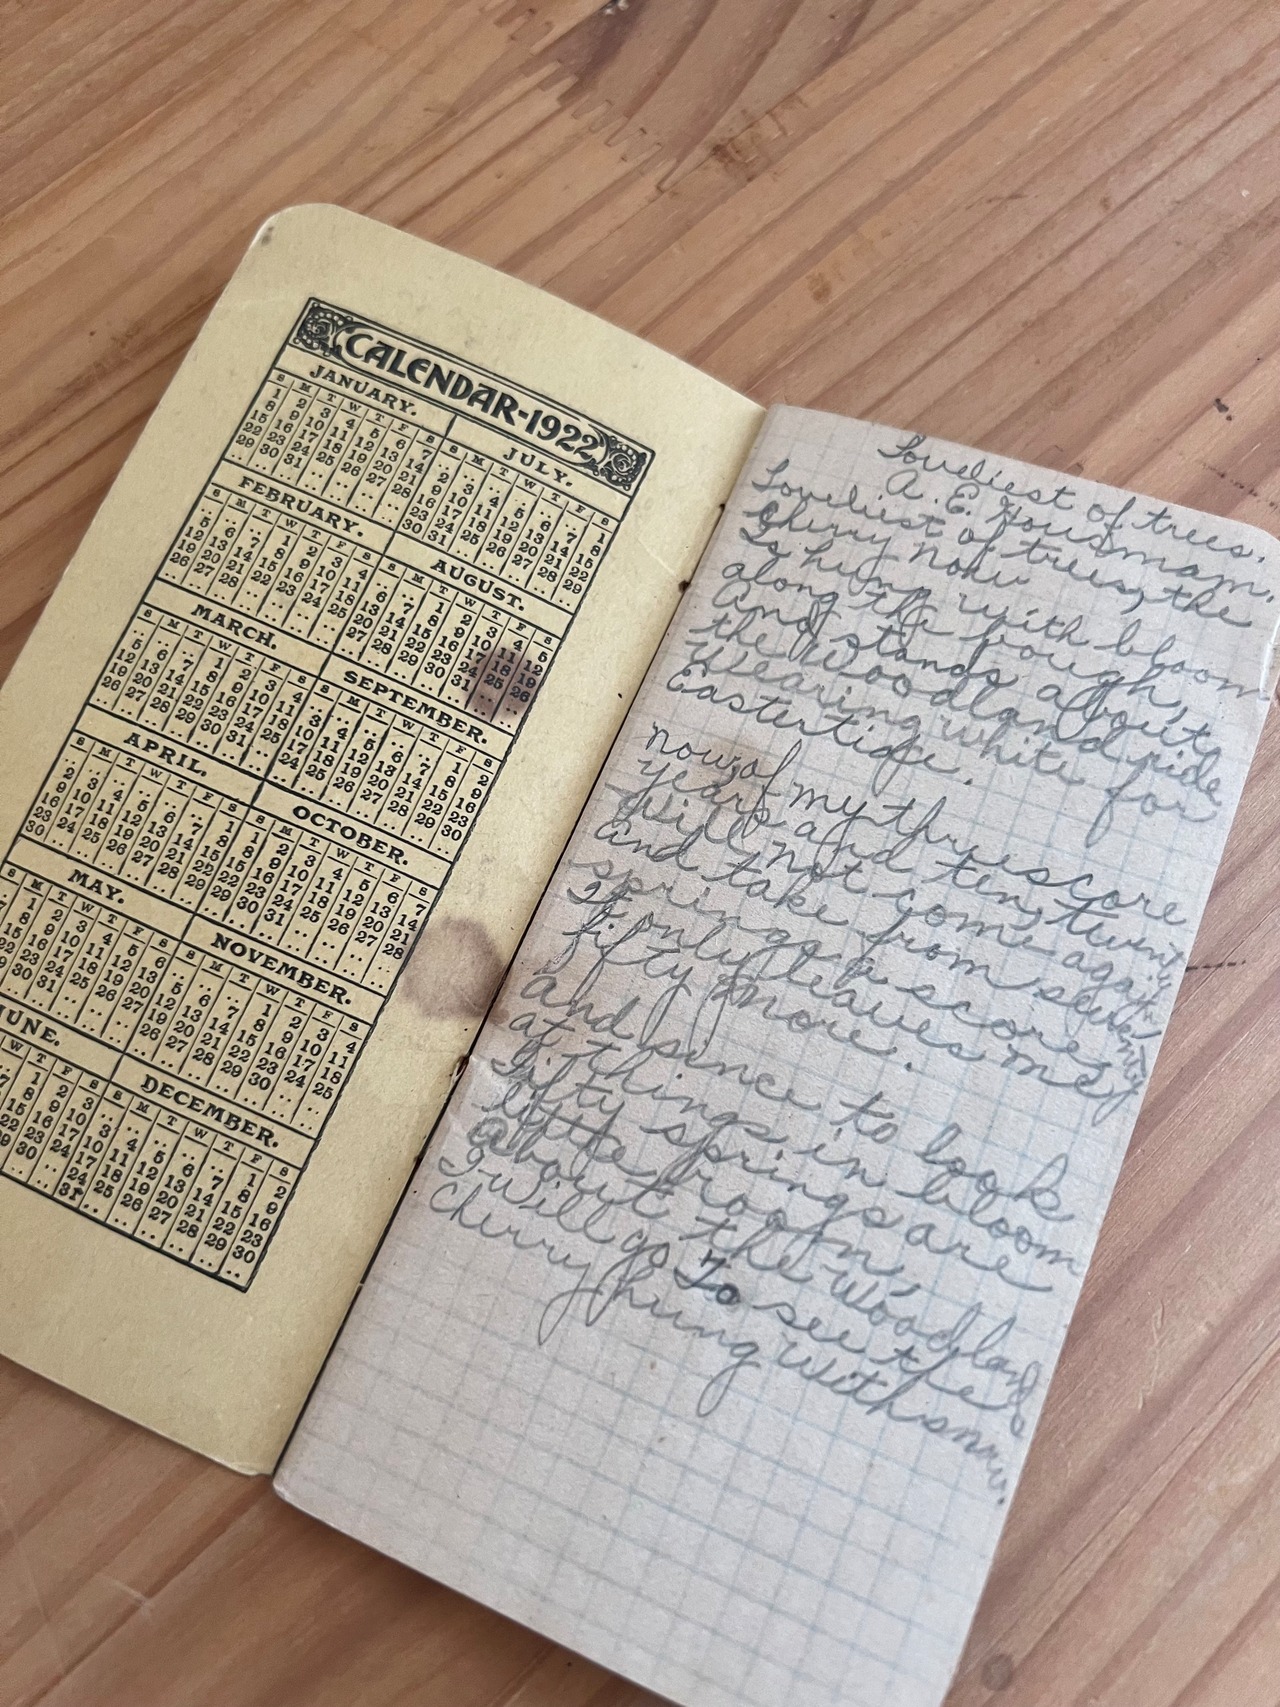 CALENDAR-1922
JANUARY.
S M T W T F S
1 2 3 4 5 6 7
8 9 10 11 12 13 14
15 16 17 18 19 20 21
22 23 24 25 26 27 28
29 30 31
FEBRUARY.
S M T W T F S
1 2 3 4
5 6 7 8 9 10 11
12 13 14 15 16 17 18
19 20 21 22 23 24 25
26 27 28
MARCH.
S M T W T F S
1 2 3 4
5 6 7 8 9 10 11
12 13 14 15 16 17 18
19 20 21 22 23 24 25
26 27 28 29 30 31
APRIL.
S M T W T F S
1
2 3 4 5 6 7 8
9 10 11 12 13 14 15
16 17 18 19 20 21 22
23 24 25 26 27 28 29
30
MAY.
S M T W T F S
1 2 3 4 5 6
8 9 10 11 12 13
15 16 17 18 19 20
22 23 24 25 26 27
29 30 31
JUNE.
W T F S
1 2 3
7 8 9 10
15 16 17
22 23 24
30
JULY.
S M T W T F S
1
2 3 4 5 6 7 8
9 10 11 12 13 14 15
16 17 18 19 20 21 22
23 24 25 26 27 28 29
30 31
AUGUST.
S M T W T F S
1 2 3 4 5
6 7 8 9 10 11 12
13 14 15 16 17 18 19
20 21 22 23 24 25 26
27 28 29 30 31
SEPTEMBER.
S M T W T F S
1 2
3 4 5 6 7 8 9
10 11 12 13 14 15 16
17 18 19 20 21 22 23
24 25 26 27 28 29 30
OCTOBER.
S M T W T F S
1 2 3 4 5 6 7
8 9 10 11 12 13 14
15 16 17 18 19 20 21
22 23 24 25 26 27 28
29 30 31
NOVEMBER.
S M T W T F S
1 2 3 4
5 6 7 8 9 10 11
12 13 14 15 16 17 18
19 20 21 22 23 24 25
26 27 28 29 30
DECEMBER.
S M T W T F S
1 2
3 4 5 6 7 8 9
10 11 12 13 14 15 16
17 18 19 20 21 22 23
24 25 26 27 28 29 30
31
Loveliest of trees.
A. E. Housmam.
Loveliest of trees, the
Cherry now
Is hung with bloom
along the bough,
And stands about
the woodland ride
Wearing white for
Eastertide.
now, of my threescore
years and ten,
Twenty
will not come again,
and take from seventy
springs a score,
It only leaves me
fifty more.
and since to look
at things in bloom
Fifty springs are
little room,
About the woodlands
I will go
To see the
Cherry hung with snow.